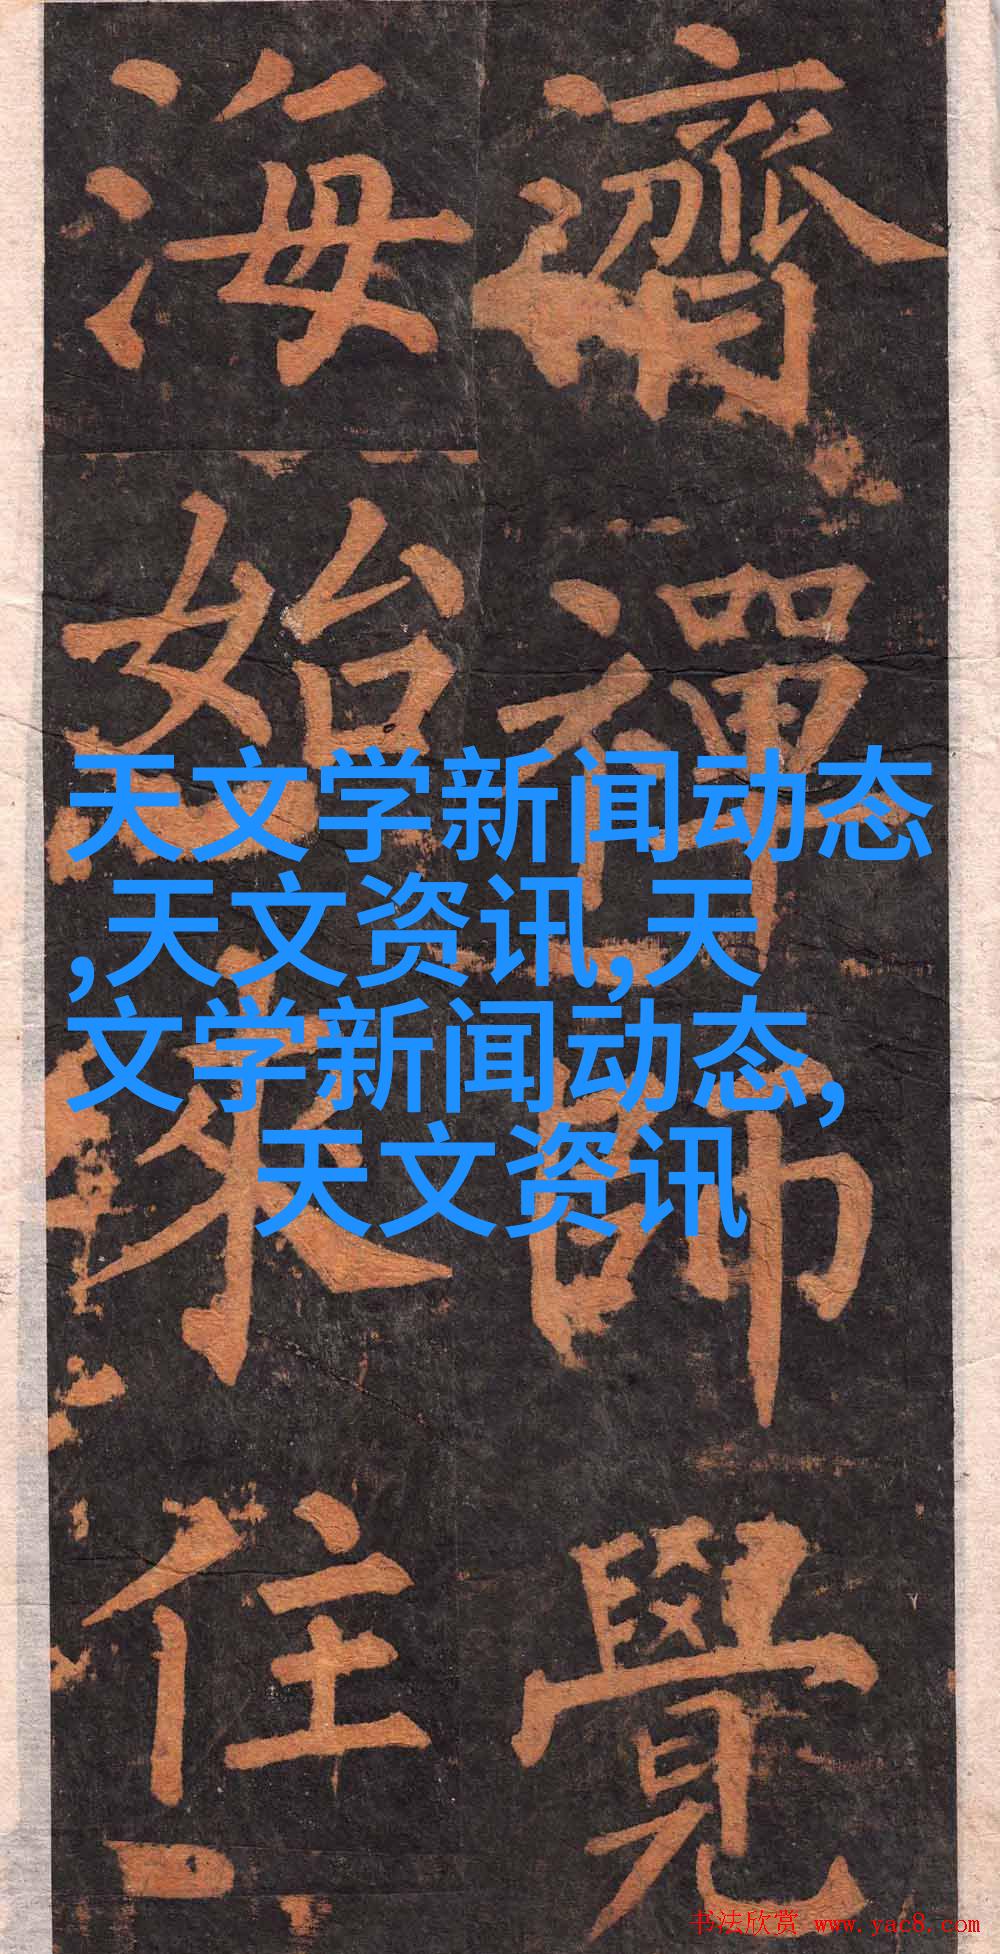 濟禪師覺
海始來住
天文学新闻动态
,天文资讯,天
文学新闻动态,
天文资讯
书法欣赏 www.yac8.com